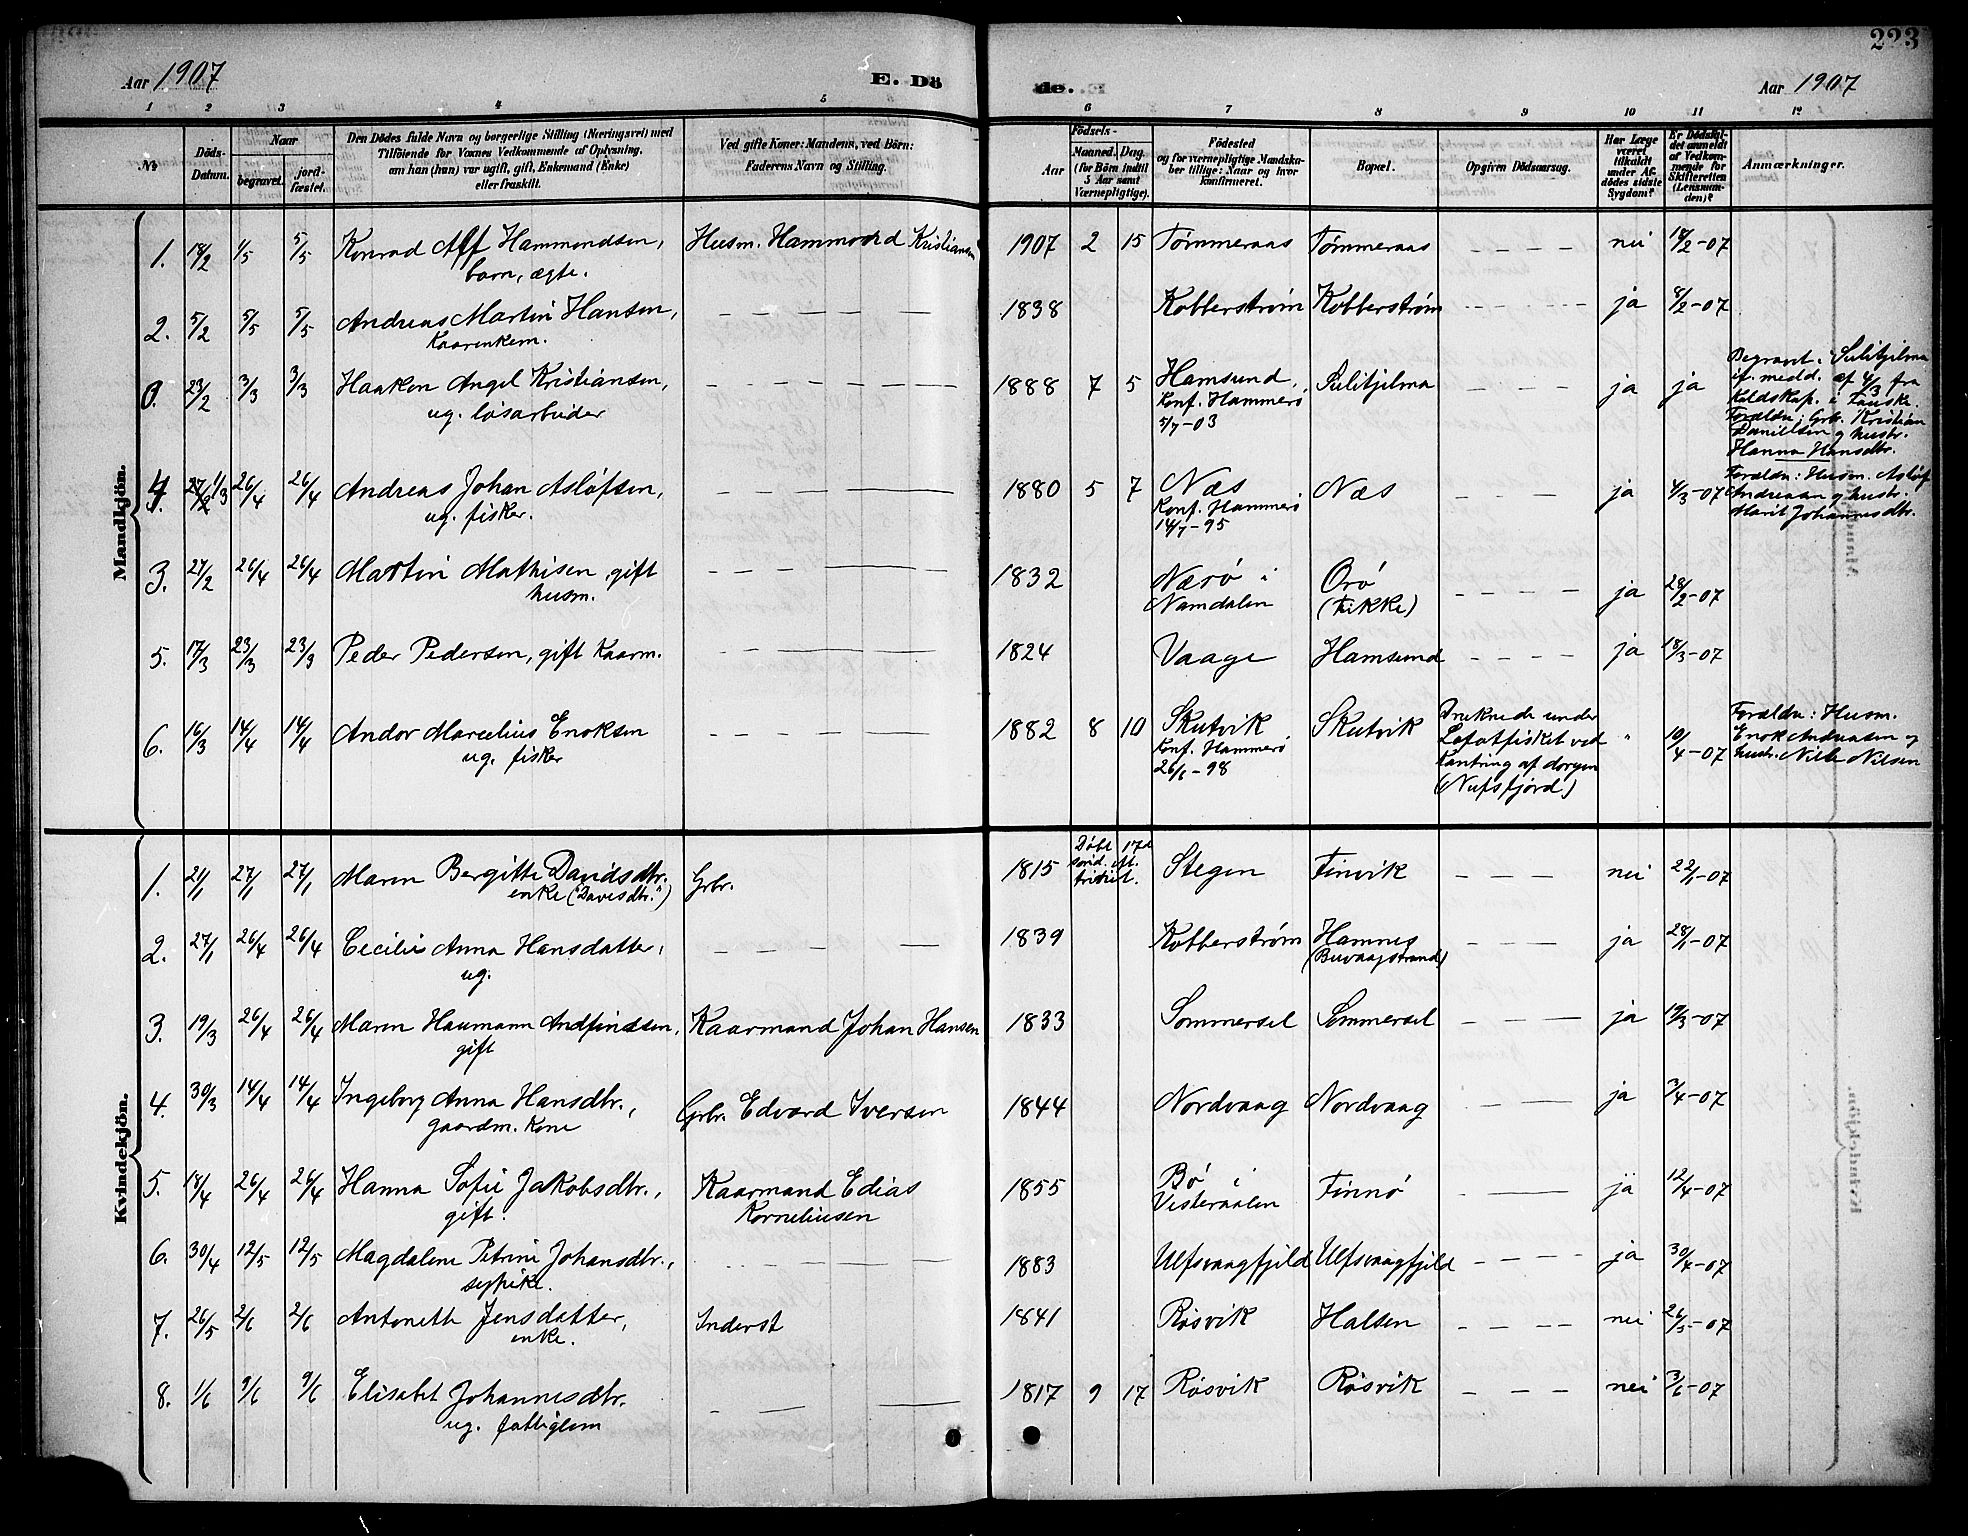 223
Aar 1907 E. Dö de. Aar 1907
1 2 3 4 5 6 7 8 9 10 11 12
№
Döds-Datum.
Naar
begravet.
jordfæstet.
Den Dödes fulde Navn og borgerlige Stilling (Næringsvei) med
Tilföiende for Voxnes Vedkommende af Oplysning,
om han (hun) var ugift, gift, Enkemand (Enke)
eller fraskilt.
Ved gifte Koner: Mandens, ved Börn:
Faderens Navn og Stilling.
Födsels-
Aar
Maaned. Dag.
(for Börn indtil
5 Aar samt
Værnepligtige).
Födested
og for værnepligtige Mandska-
ber tillige: Naar og hvor
konfirmeret.
Bopæl.
Opgiven Dödsaarsag.
Har Læge
været
tilkaldt
under Af-
dödes sidste
Sygdom?
Er Dödsfal-
det anmeldt
af Vedkom-
mende for
Skifteretten
(Lensman-
den)?
Anmærkninger.
Mandkjön.
1. 18/2 1/5 5/5 Konrad Alf Hammondsen, Husm. Hammond Kristiansen 1907 2 15 Tømmeraas Tømmeraas nei 18/2-07
barn, ægte.
2. 5/2 5/5 5/5 Andreas Martin Hansen, 1838 Kobberstrøm Kobberstrøm ja 8/2-07
Kaarenkem.
0. 23/2 3/3 3/3 Haakon Angel Kristiansen, 1888 7 5 Hamsund, Sulitjelma ja ja
ug. løsarbeider
Konf. Hammerø
5/7-03
Begravet i Sulitjelma
if. medd. af 4/3 fra
Koldskap. i Fauske.
Forældre: Grb. Kristian
Daniellsen og hustr.
Hanna Hansdbr.
4. 27/2 1/3 26/4 26/4 Andreas Johan Asløfsen, 1880 5 7 Næs Næs ja 4/3-07
ug. fisker.
Konf. Hammerø
14/7-95
Forældre: Husm. Asløf
Andreasen og hustr.
Marit Johannesdbr.
3. 27/2 26/4 26/4 Martin Mathisen, gift 1832 Nærø i Orø ja 28/2-07
husm.
Namdalen
5. 17/3 23/3 23/3 Peder Pedersen, gift Kaarm. 1824 Vaage Hamsund ja 18/3-07
6. 16/3 14/4 14/4 Andor Marcelius Enoksen 1882 8 10 Skutvik Skutvik " 10/4-07
ug. fisker
Konf. Hammerø
26/6-98
Druknede under
Lofotfisket ved
Kantring af dorgen
(Nufsfjord)
Forældre: Husm.
Enok Andreasen og
hustr. Nille Nilsen
Kvindekjön.
1. 21/1 27/1 27/1 Maren Bergitte Davidsdbr. Grbr. 1815 Døbt 17d Stegen Finvik nei 22/1-07
enke ("Davesdbr.")
2. 27/1 26/4 26/4 Cecilie Anna Hansdatter, 1839 Kobberstrøm Hamnes ja 28/1-07
ug.
(Buvaagstrand)
3. 19/3 26/4 26/4 Maren Haumann Andfindsen, Kaarmand Johan Hansen 1833 Sommersel Sommersel ja 19/3-07
gift
4. 30/3 14/4 14/4 Ingeborg Anna Hansdbr., Grbr. Edvard Iversen 1844 Nordvaag Nordvaag ja 3/4-07
gaardm. Kone
5. 18/4 26/4 26/4 Hanna Sofie Jakobsdbr., Kaarmand Edias 1855 Bø i Finnø ja 12/4-07
gift. Korneliusen
Vesteraalen
6. 30/4 12/5 12/5 Magdalene Petrine Johansdbr., 1883 Ulfsvaagfjeld Ulfsvaagfjeld ja 30/4-07
sypike.
7. 26/5 2/6 2/6 Antonette Jensdatter, Inderst 1841 Røsvik Halsen nei 26/5-07
enke.
8. 1/6 9/6 9/6 Elisabet Johannesdbr. 1817 9 17 Røsvik Røsvik nei 3/6-07
ug. fattiglem